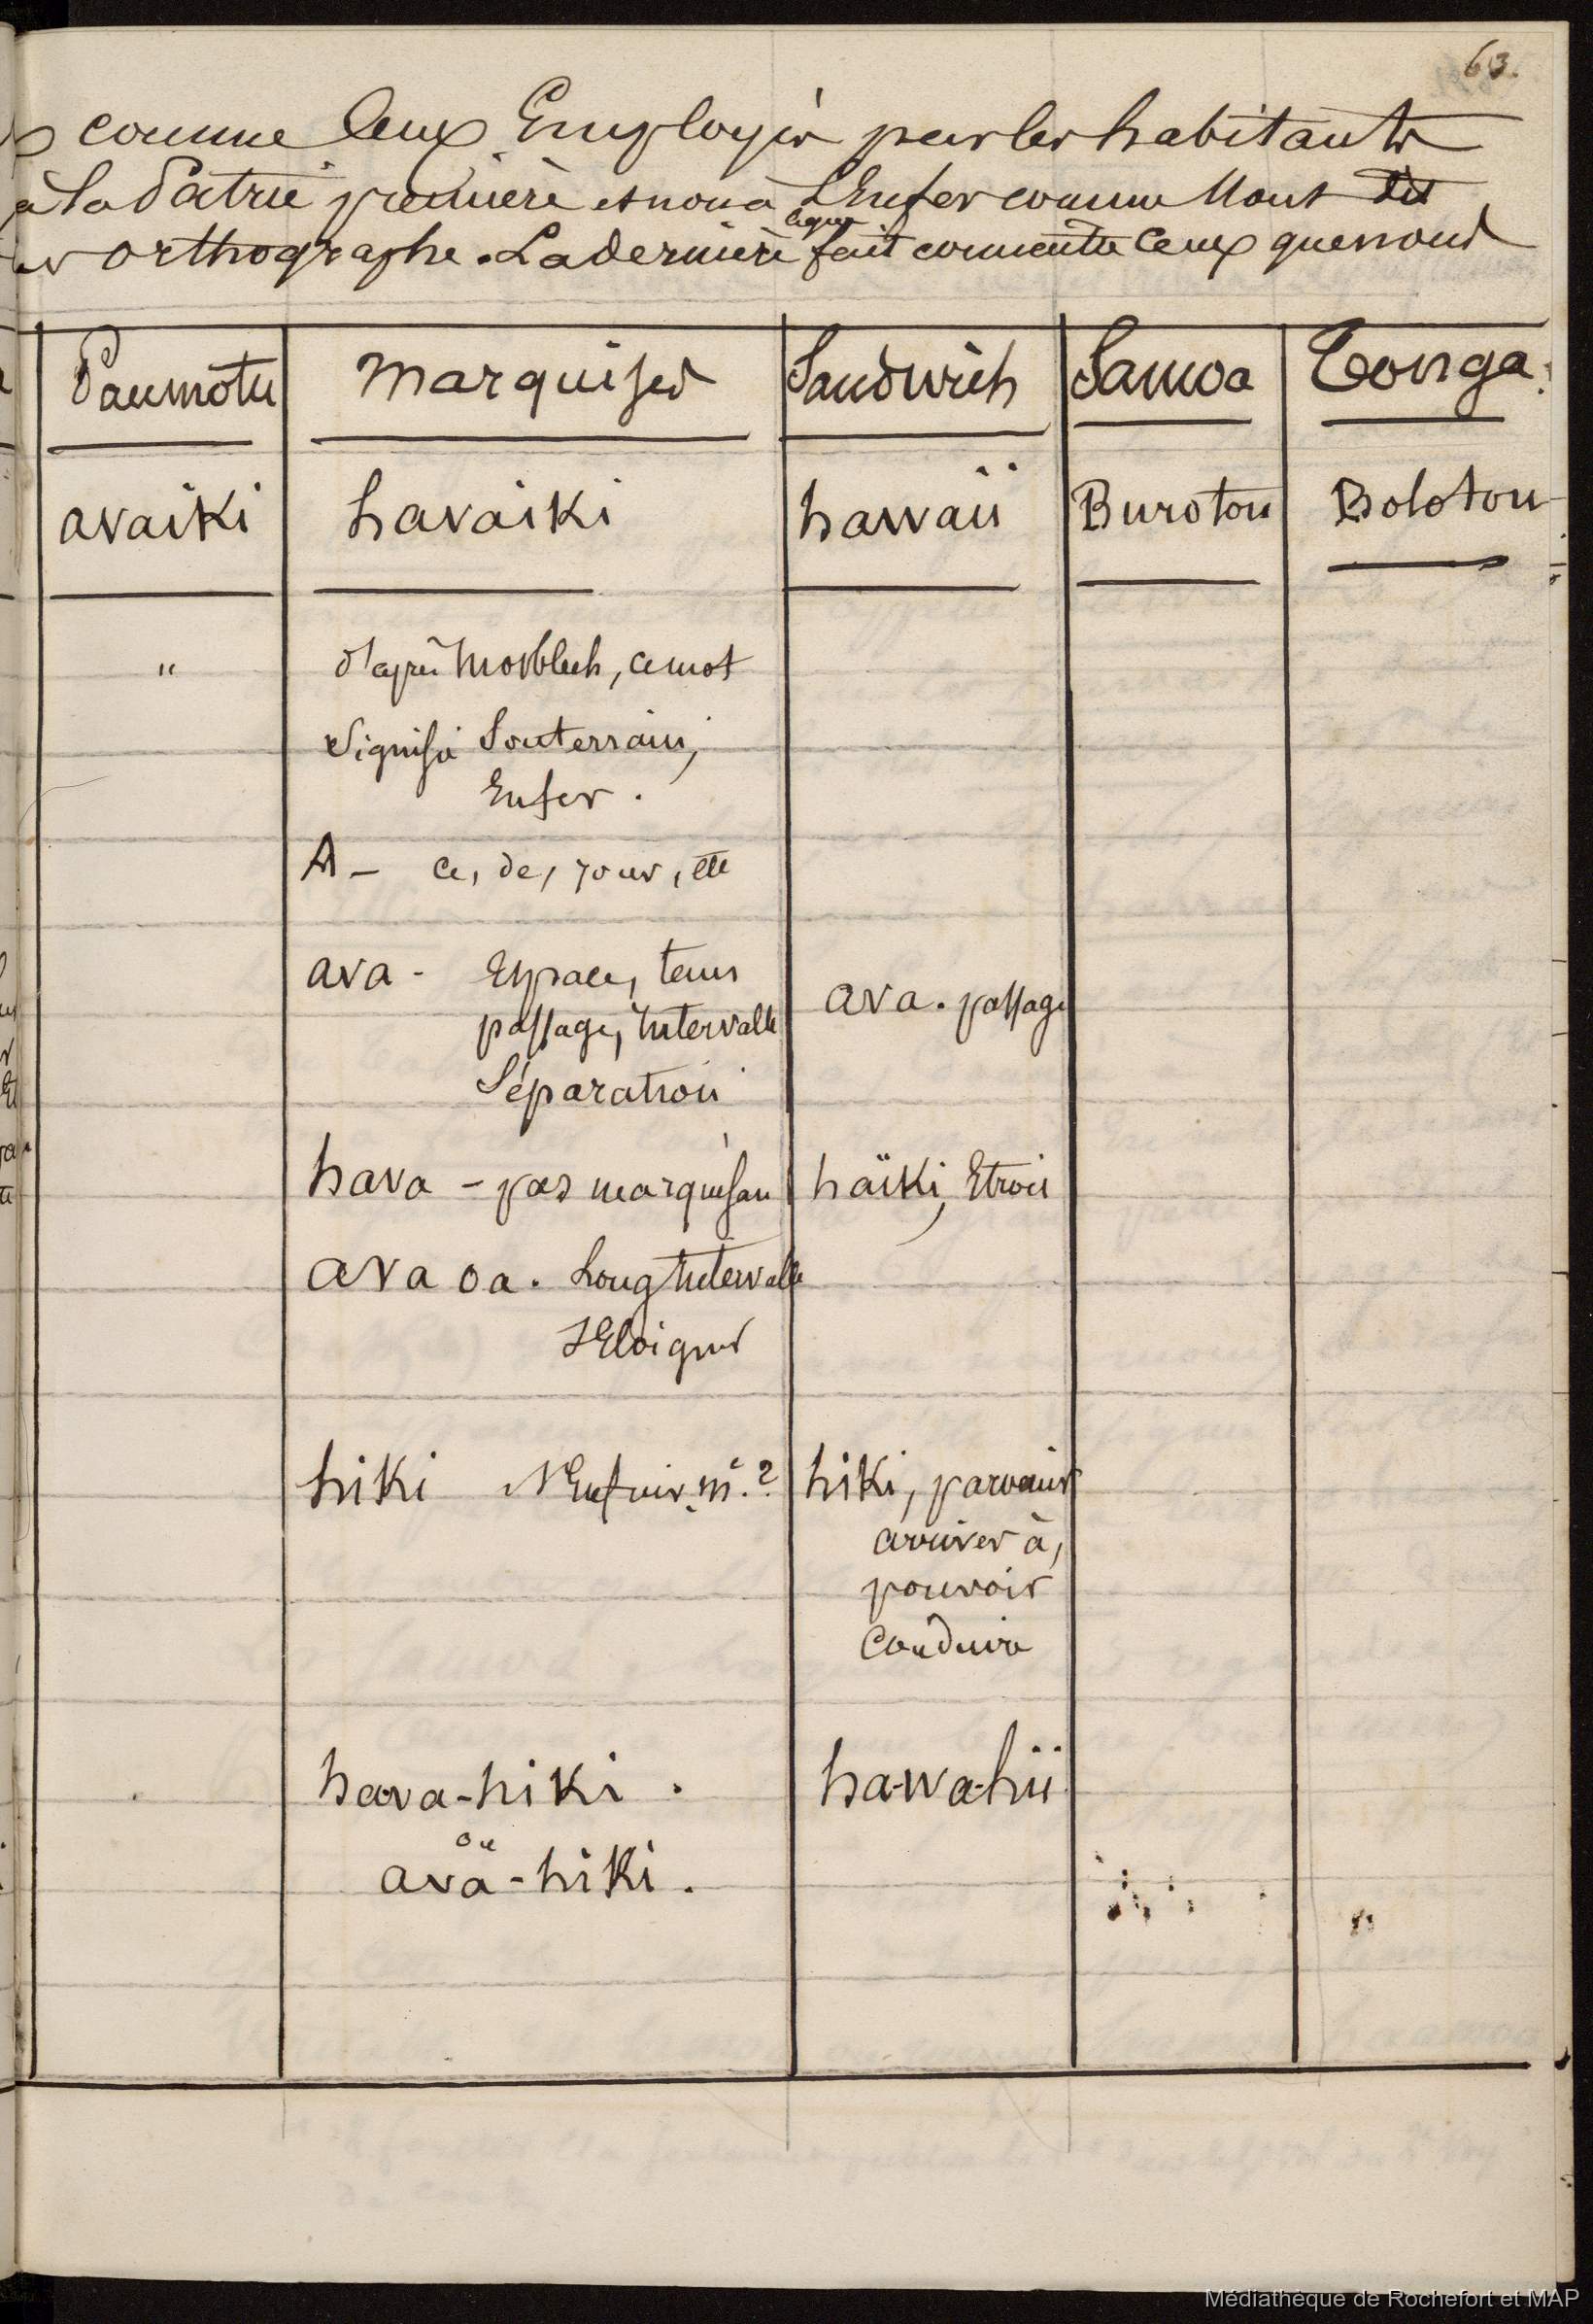 63.
comme ceux Employés par les habitants
à la Patrie première et non à L'Enfer comme l'ont dit
orthographe. La dernière ligne fait connaître Ceux que nous
Paumotu Marquises Sandwich Samoa Tonga
avaiki havaiki hawaii Burotou Bolotou
" d'après Mosblech, ce mot
Signifie Souterrain,
Enfer.
A - ce, de, pour, etc
ava - Espace, tems ava. passage
passage, Intervalle
Séparation
hava - pas marquisan häiki, Etroit
ava oa. Long Intervalle
s'Eloigner
hiki s'Enfuir. m.? hiki, parvenir
arriver à,
pouvoir
Conduire
hava-hiki. ha-wa-hii
ou
ava-hiki.
Médiathèque de Rochefort et MAP